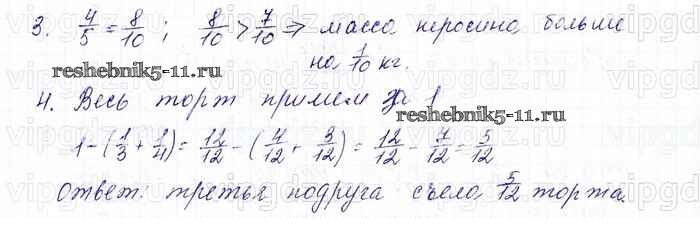 3. 4/5 = 8/10 ; 8/10 > 7/10 ⇒ масса керосина больше
на 1/10 кг.
reshebnik5-11.ru
4. Весь торт примем за 1
reshebnik5-11.ru
1 - (1/3 + 1/4) = 12/12 - (4/12 + 3/12) = 12/12 - 7/12 = 5/12
Ответ: третья подруга съела 5/12 торта.